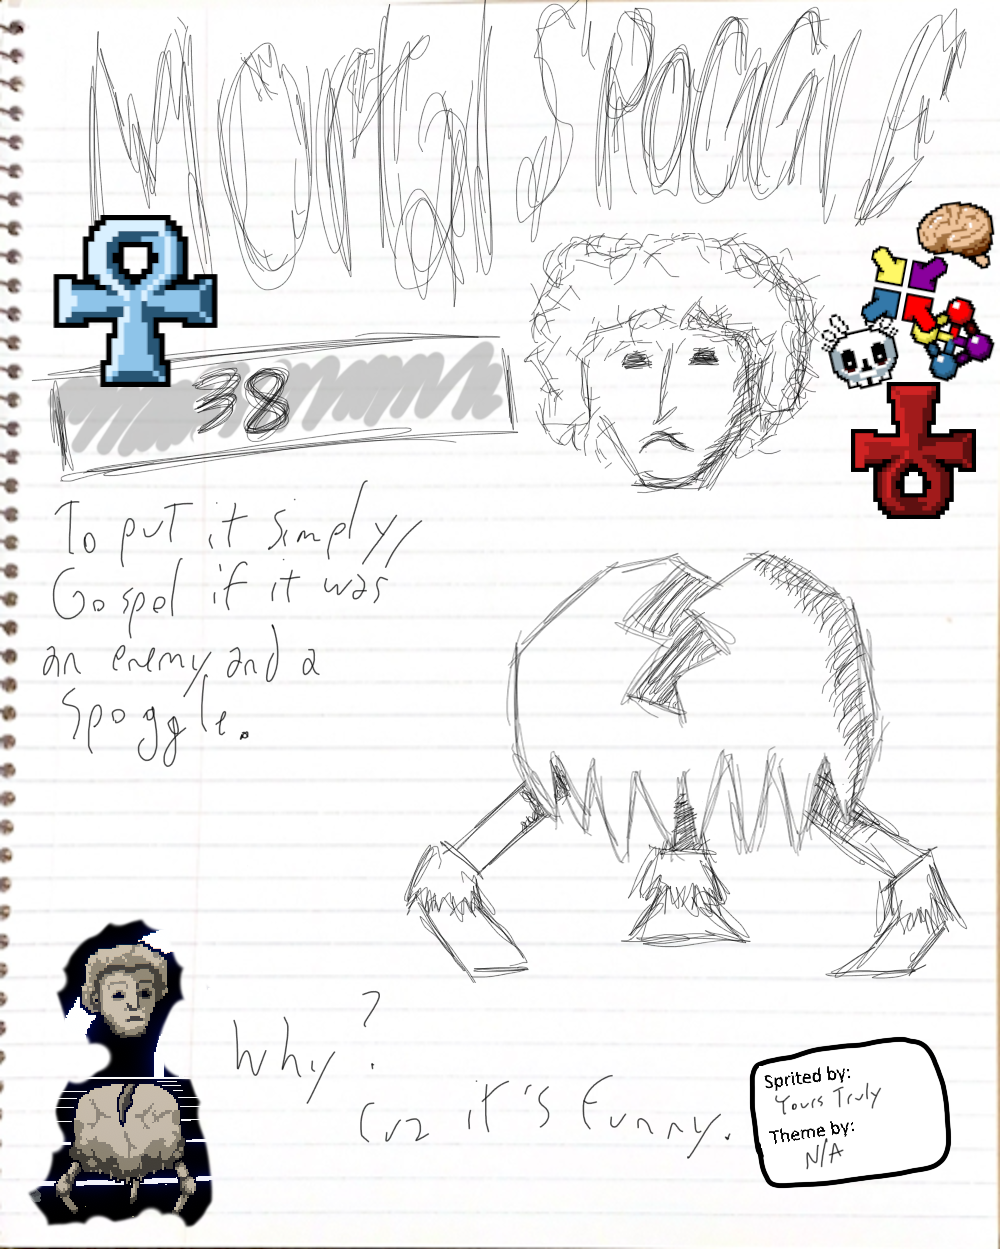 Mortal Spoggle
38
To put it simply,
Gospel if it was
an enemy and a
Spoggle.
Why?
Cuz it's funny.
Sprited by:
Yours Truly
Theme by:
N/A